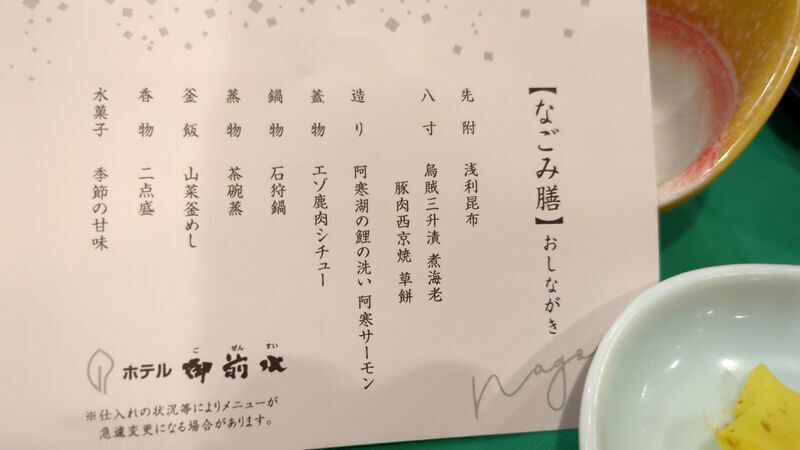 【なごみ膳】おしながき
先附 浅利昆布
八寸 烏賊三升漬 煮海老
豚肉西京焼 草餅
造り 阿寒湖の鯉の洗い 阿寒サーモン
蓋物 エゾ鹿肉シチュー
鍋物 石狩鍋
蒸物 茶碗蒸
釜飯 山菜釜めし
香物 二点盛
水菓子 季節の甘味
ご ぜん すい
ホテル 御前水
※仕入れの状況等によりメニューが
急遽変更になる場合があります。
Nago